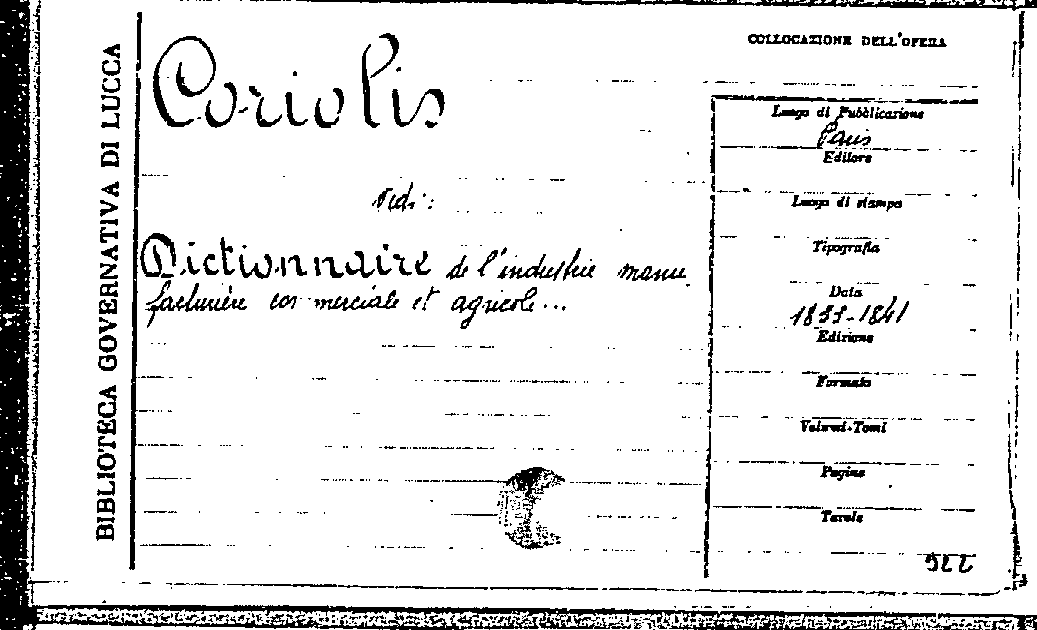 BIBLIOTECA GOVERNATIVA DI LUCCA
Coriolis
vedi:
Dictionnaire de l'industrie manu
facturière commerciale et agricole...
COLLOCAZIONE DELL'OPERA
Luogo di Pubblicazione
Paris
Editore
Luogo di stampa
Tipografia
Data
1833-1841
Edizione
Formato
Volumi-Tomi
Pagine
Tavole